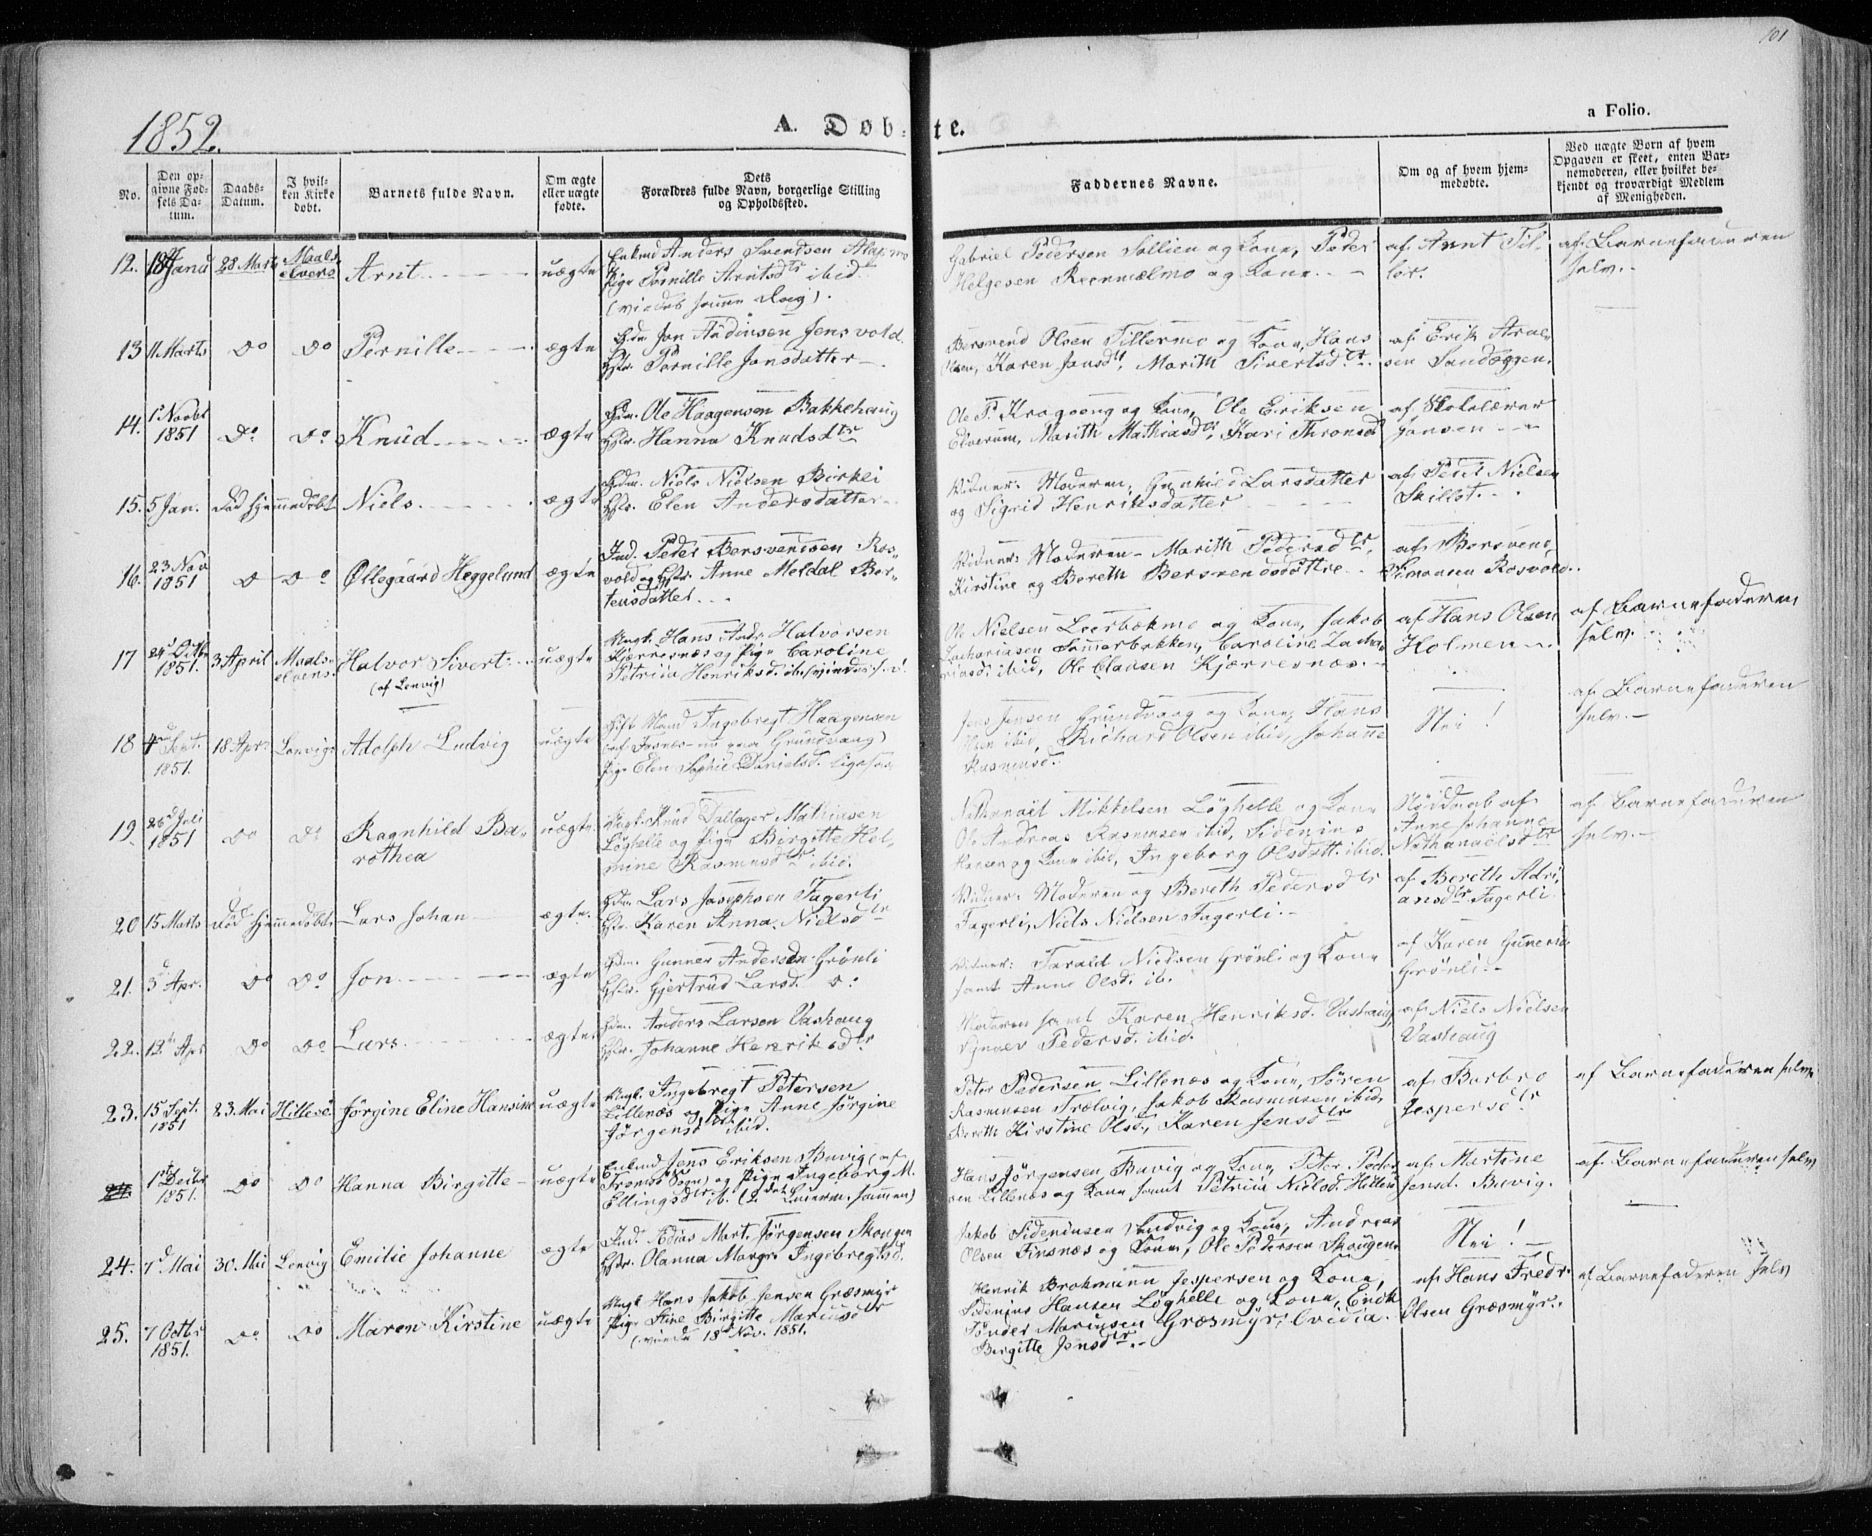 101
1852.
A. Døbte.
a Folio.
No.
Den op-
givne Fød-
sels Da-
tum.
Daabs-
Datum.
I hvil-
ken Kirke
døbt.
Barnets fulde Navn.
Om ægte
eller uægte
fødte.
Dets
Forældres fulde Navn, borgerlige Stilling
og Opholdssted.
Faddernes Navne.
Om og af hvem hjem-
medøbte.
Ved uægte Børn af hvem
Opgaven er skeet, enten Bar-
nemoderen, eller hvilket be-
kjendt og troværdigt Medlem
af Menigheden.
12. 18 Janu 28 Marts Maals
elvens Arnt uægte
Enkmd Anders Svendsen
Pige Pernille Arntsdtr ibid
(viedes samme Dag).
Gabriel Pedersen Sollien og Kone, Peder
Helgesen og Kone
af Arnt Til
ler.
af Barnefaderen
selv.
13 11 Marts Do Do Pernille ægte
Gdm. Jon Jensvold
Hstr. Pernille Jonsdatter
Bersvend Olsen Tillermo og Kone, Hans
Olsen, Karen Jonsd, Marith Sivertsdtr
af Erik Arne
sen Sandeggen.
14. 1 Novbr
1851 Do. Do Knud ægte
Gdm. Ole Haagensen Bakkehaug
Hstr. Hanna Knudsdtr
Ole P. Kragoeng og Kone, Ole Eriksen
Elverum, Marith Mathiasdtr, Kari Thronsd
af Skolelærer
Jonsen
15. 5 Jan. Død Hjemmedøbt Niels ægte
Gdm. Niels Nielsen Birkli
Hstr. Elen Andersdatter
Vidner: Moderen, Gunhild Larsdatter
og Sigrid Henriksdatter
af Peder Nielsen
16. 23 Nov
1851 Do Do Øllegaard Heggelund ægte
Ind. Peder Bersvendsen Ros-
vold og Hstr. Anne Meldal Bor-
tensdatter
Vidner: Moderen - Marith Pedersdtr
Kirstine og Bereth Bersvendsdøttre
af Bersvend
Simonsen Rosvold.
17 24 Octbr
1851. 3 April Maals-
elvens Halvor Sivert
(af Lenvig) uægte
Ungk. Hans Andr. Halvorsen
Kjerresnæs og Pige Caroline
Petriia Henriksd.
Ole Nielsen Leerbækmo og Kone, Jakob
Zachariasen Sommerbakken, Caroline Zacha-
riasd. ibid, Ole Clausen Kjerresnæs.
af Hans Olsen
Holmen
af Barnefaderen
selv.
18 4 Sept.
1851. 18 Apr. Lenvig Adolph Ludvig uægte
Gift Mand Ingebregt Haagensen
Grundvaag)
Pige Elen Sophie Danielsd.
Jens Jensen Grundvaag og Kone, Hans
Olsen ibid, Richard Olsen ibid, Johanne
Rasmusd.
Nei!
af Barnefaderen
selv.
19. 26 Juli
1851 Do Do Ragnhild Ba-
rothea uægte.
Ungk. Knud Dallager Mathiasen
Løghelle og Pige Birgitte Hel-
mine Rasmusdtr ibid.
Nathanael Mikkelsen Løghelle og Kone
Ole Andreas Rasmusen ibid, Sidenius
Hansen og Kone ibid, Ingeborg Olsdatt. ibid.
Nøddaab af
Anne Johanne
Nathanaelsdtr
af Barnefaderen
selv.
20 15 Marts Død Hjemmedøbt Lars Johan ægte.
Gdm Lars Josephsen Fagerli
Hstr. Karen Anna Nielsdtr
Vidner: Moderen og Bereth Pedersdtr
Fagerli, Niels Nielsen Fagerli.
af Berethe Adri
ansdtr Fagerli.
21. 3 Apr. Do Do Jon ægte
Gdm. Gunner Andersen Grönli
Hstr. Gjertrud Larsd. Do.
Vidner: Tarald Nielsen Grönli og Kone
samt Anne Olsd. ib.
af Karen Gunersd.
Grönli.
22. 12 Apr Do Do Lars ægte
Gdm. Anders Larsen Vashaug
Hstr. Johanne Henriksdtr
Moderen samt Karen Henriksd. Vashaug,
Synnøv Pedersd. ibid.
af Niels Nielsen
Vashaug
23. 15 Sept.
1851 23. Mai Hillesø Jørgine Eline Hansine uægte
Ungk. Ingebregt Petersen
Lillenæs og Pige Anne Jørgine
Jørgensdtr ibid.
Peter Pedersen Lillenæs og Kone, Søren
Rasmussen Trælvig, Jakob Rasmussen ibid,
Berith Kirstine Olsd., Karen Jensdtr
af Barbro
Jespersdtr
af Barnefaderen selv
24. 1 Decbr
1851. Do Do Hanna Birgitte uægte
Enkmd Jens Eriksen Buvig (af
Tromsø Sogn) og Pige Ingeborg M.
Ellingsdtr ib. (2det Leierm. sammen)
Hans Jørgensen Buvig og Kone, Peter Peder
sen Lillenæs og Kone samt Petriia Nielsd. Hillesø
af Martine
Jensd. Buvig.
af Barnefaderen selv
24. 7 Mai 30. Mai Lenvig Emilie Johanne ægte
Ind. Edias Mart. Jørgensen Skougen
Hstr. Olanna Margr. Ingebregtsd.
Jakob Sideniusen Sandvig og Kone, Andreas
Olsen Finsnæs og Kone, Ole Pedersen Skougen
Nei!
25. 7 Octbr
1851. Do. Do Maren Kirstine uægte
Ungk. Hans Jakob Jensen Græsmyr
Pige Stine Birgitte Mariusdtr
(viede 18 Nov. 1851.
Henrik Brokmann Jespersen og Kone,
Sidenius Hansen Løghelle og Kone, Erik
Tønder Mariusen Græsmyr, Ovidia
Birgitte Jensdtr
af Hans Fredr.
Olsen Græsmyr.
af Barnefaderen selv